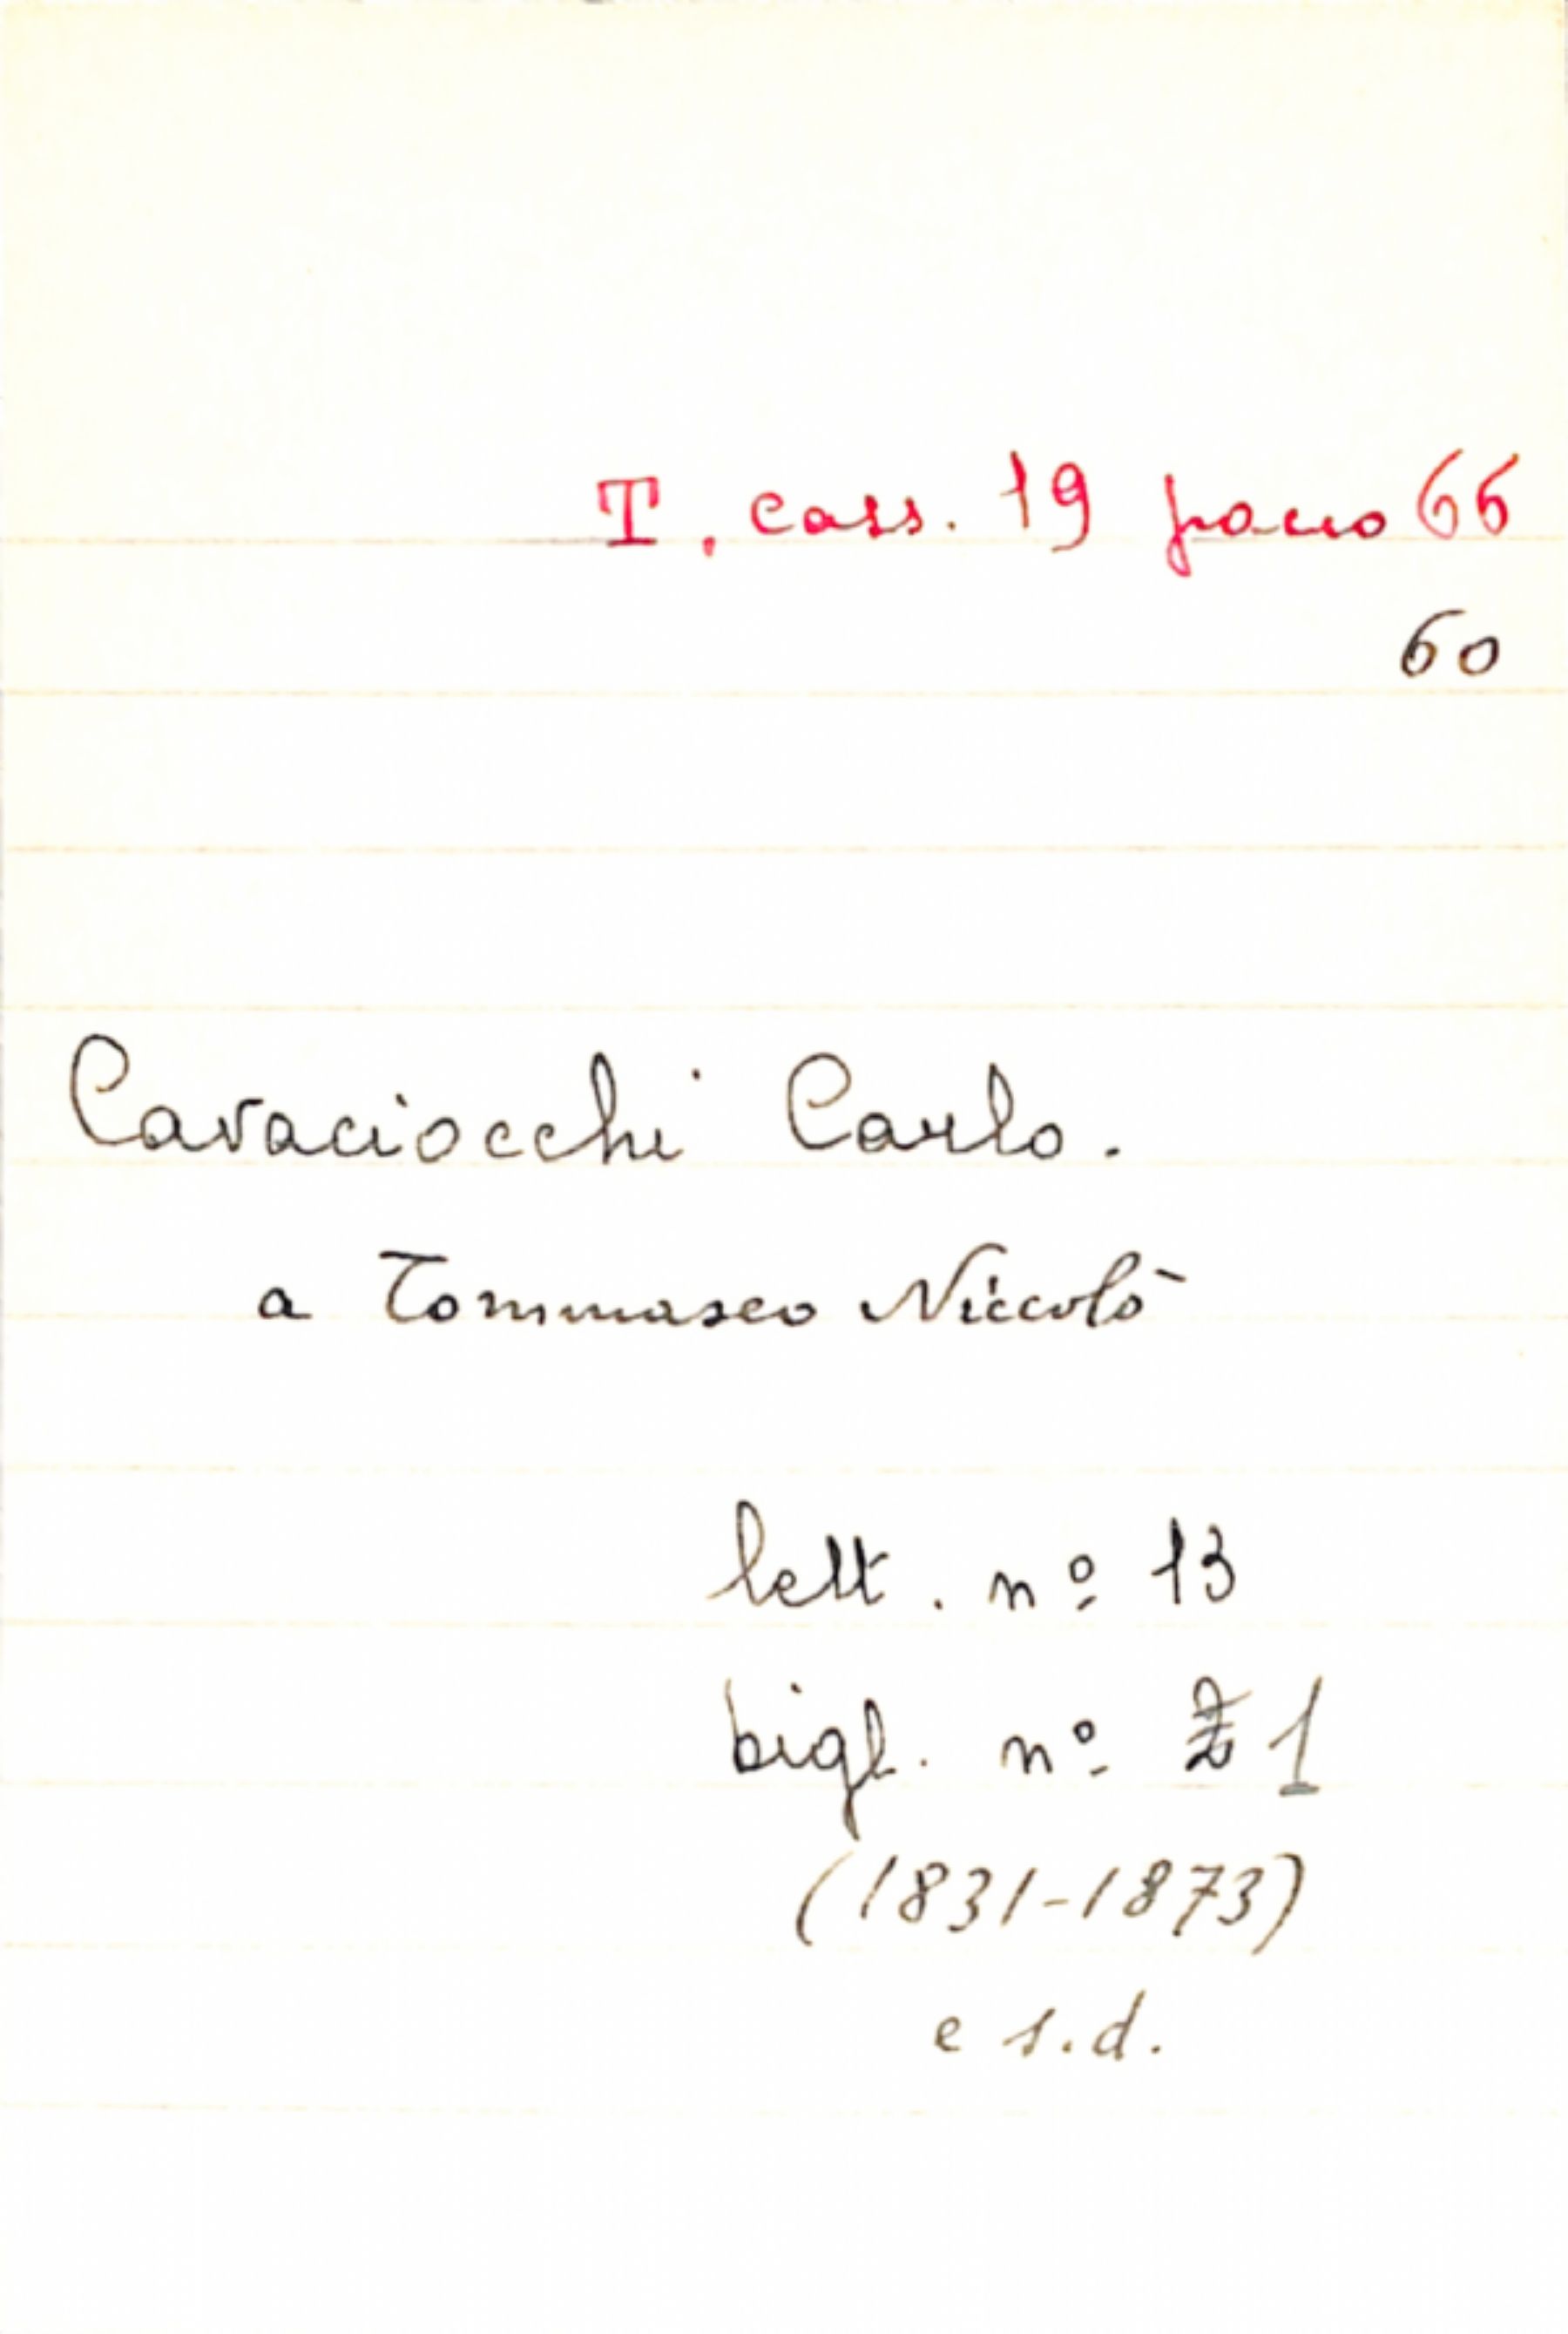 T. cass. 19 pacco 66
60
Cavaciocchi Carlo.
a Tommaseo Niccolò
lett. nº 13
bigl. nº 1
(1831-1873)
e s.d.